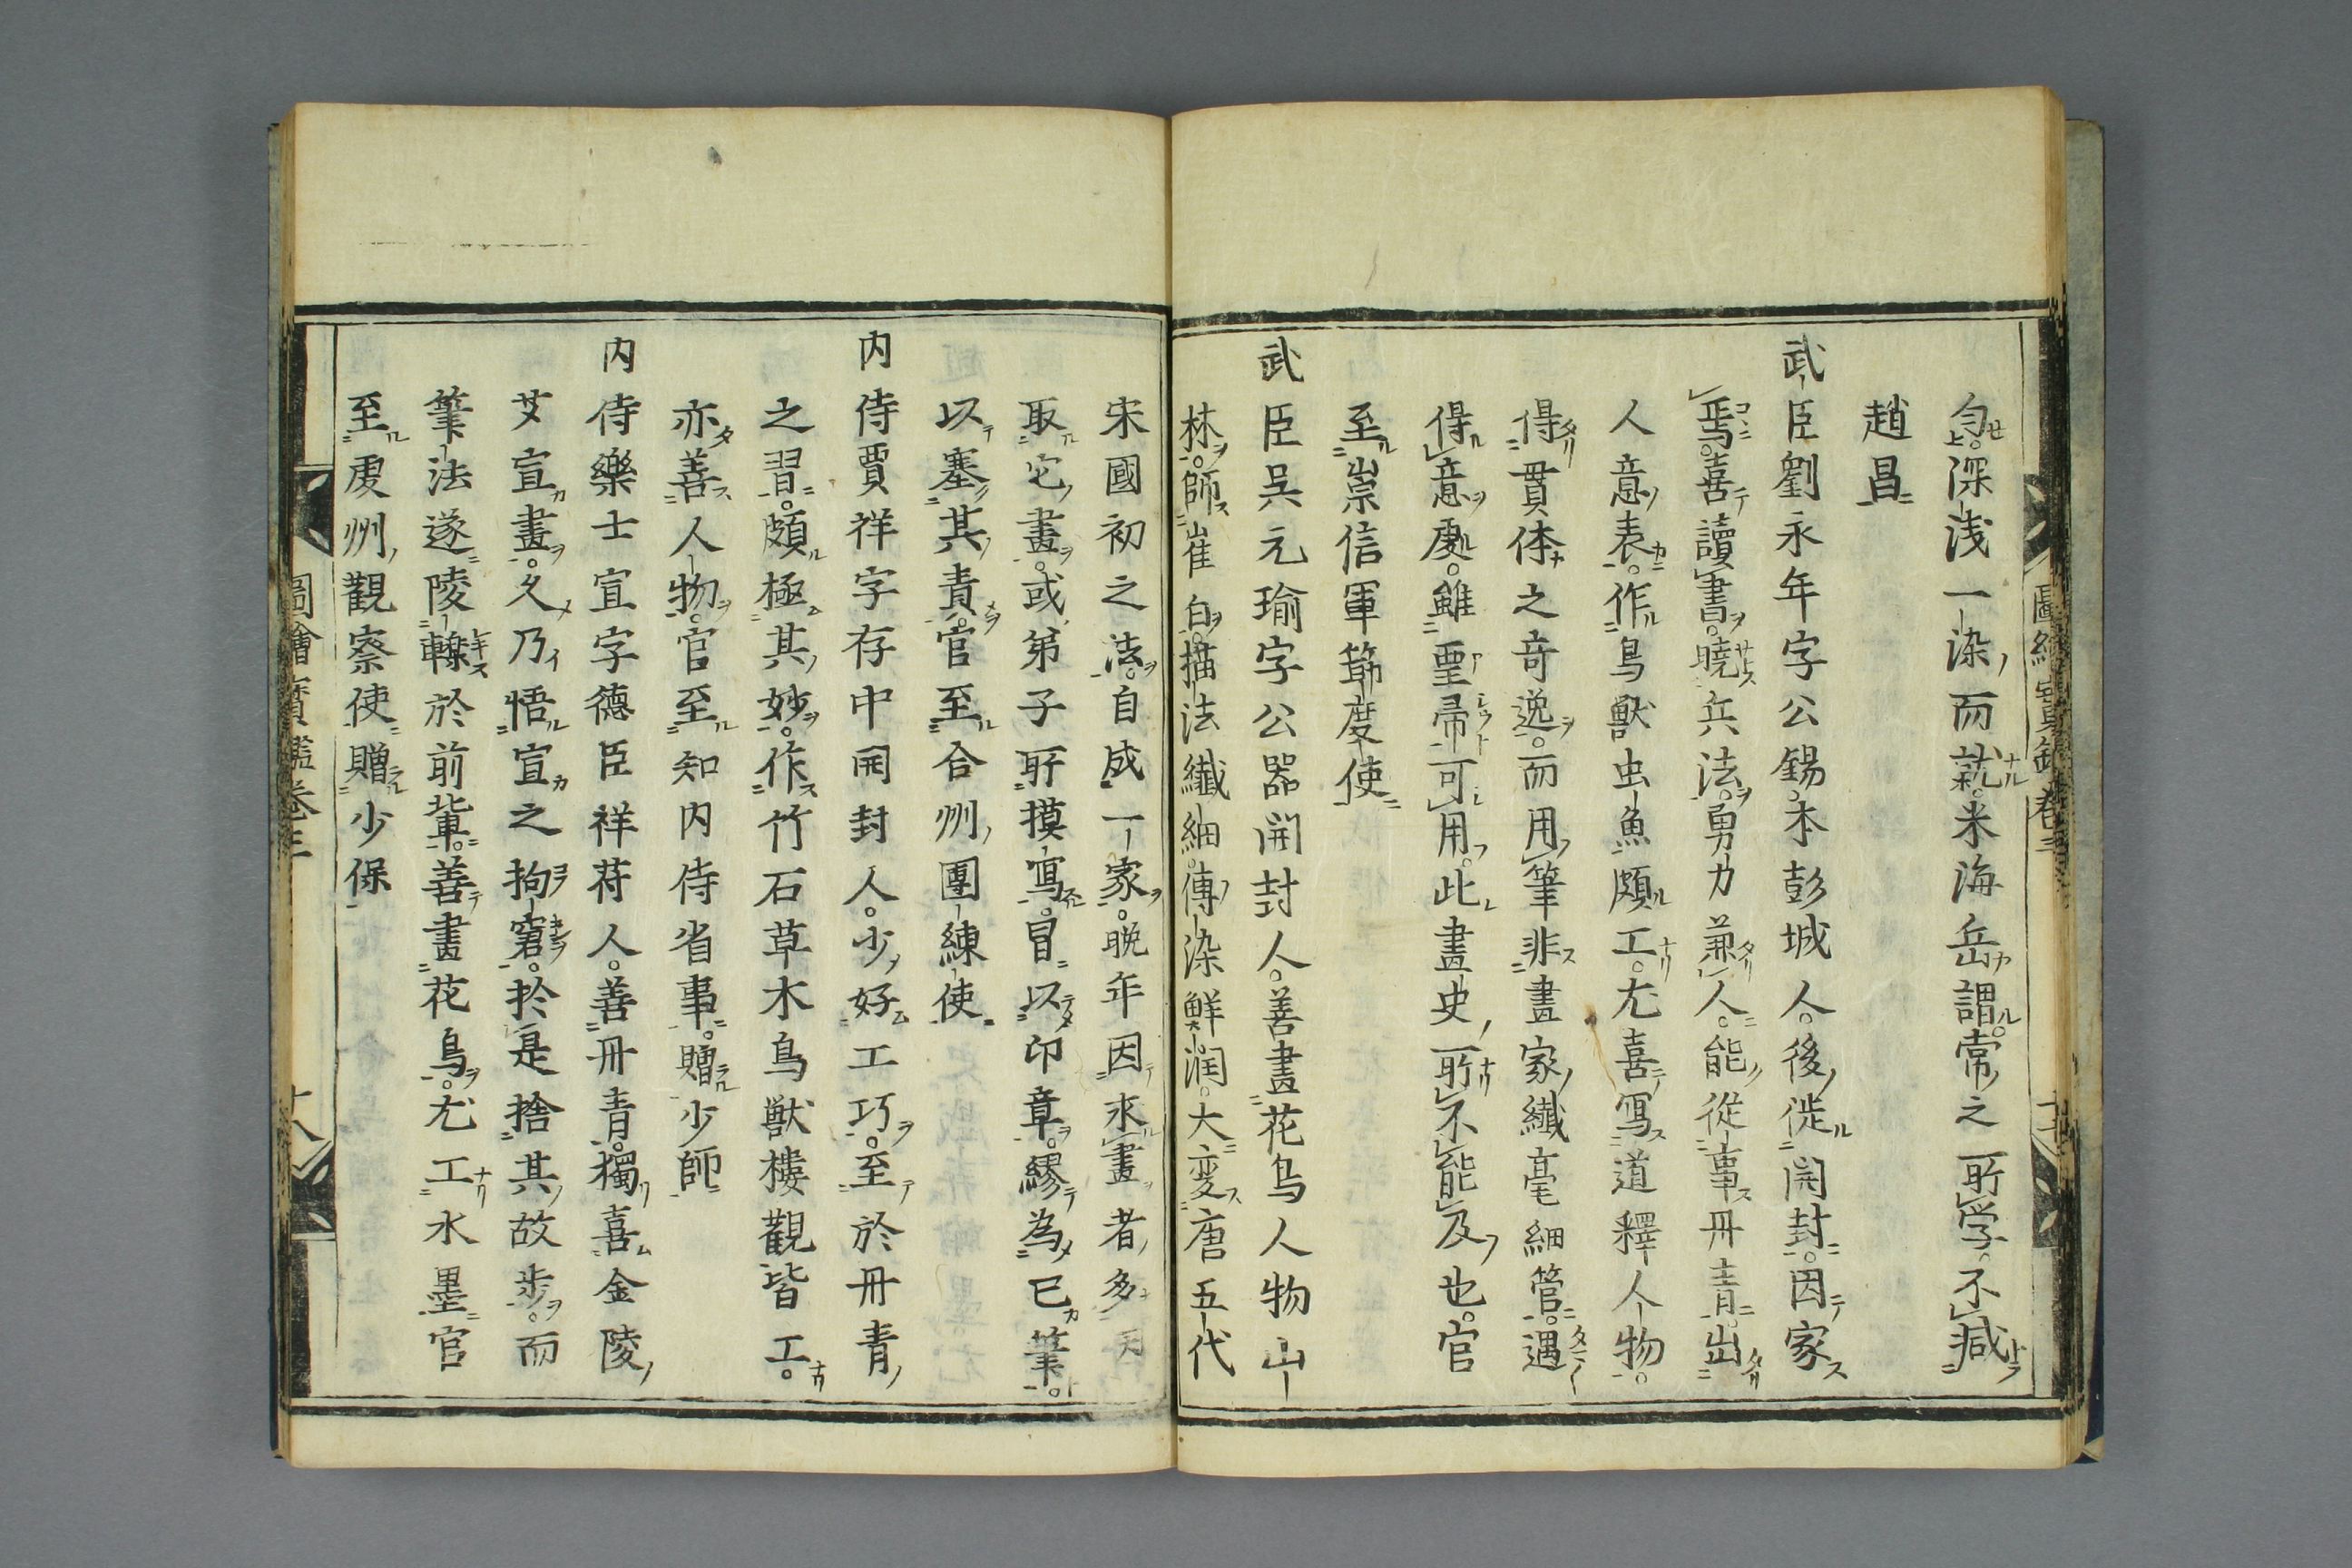 勻深浅一染而就米海岳謂常之所学不減
趙昌
武臣劉永年字公錫本彭城人後徙開封因家
焉喜讀書曉兵法勇力兼人能從事丹青出
人意表作鳥獣虫魚頗工尤喜寫道釋人物
得貫休之奇逸而用筆非畫家纎毫細管遇
得意處雖堊帚可用此畫史所不能及也官
至崇信軍節度使
武臣吳元瑜字公器開封人善畫花鳥人物山
林師崔白描法纎細傳染鮮潤大変唐五代
宋國初之法自成一家晩年因求畫者多
取它畫或弟子所摸寫冒以印章繆為已筆
以塞其責官至合州團練使
内侍賈祥字存中開封人少好工巧至於丹青
之習頗極其妙作竹石草木鳥獣樓觀皆工
亦善人物官至知内侍省事贈少師
内侍樂士宣字德臣祥苻人善丹青獨喜金陵
艾宣畫久乃悟宣之拘窘於是捨其故步而
筆法遂陵轢於前輩善畫花鳥尤工水墨官
至虔州觀察使贈少保
圖繪寶鑑卷三
十八